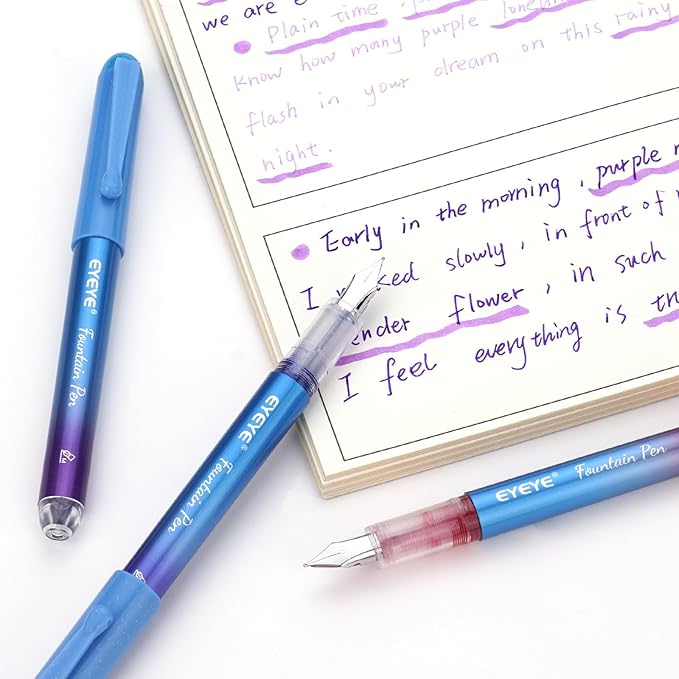 we are
Plain time,
know how many purple
flash in your dream on this rainy
night.
Early in the morning, purple
I slowly, in front of
flower, in such
I feel everything is
EYEYE® Fountain Pen
EYEYE® Fountain Pen
EYEYE® Fountain Pen